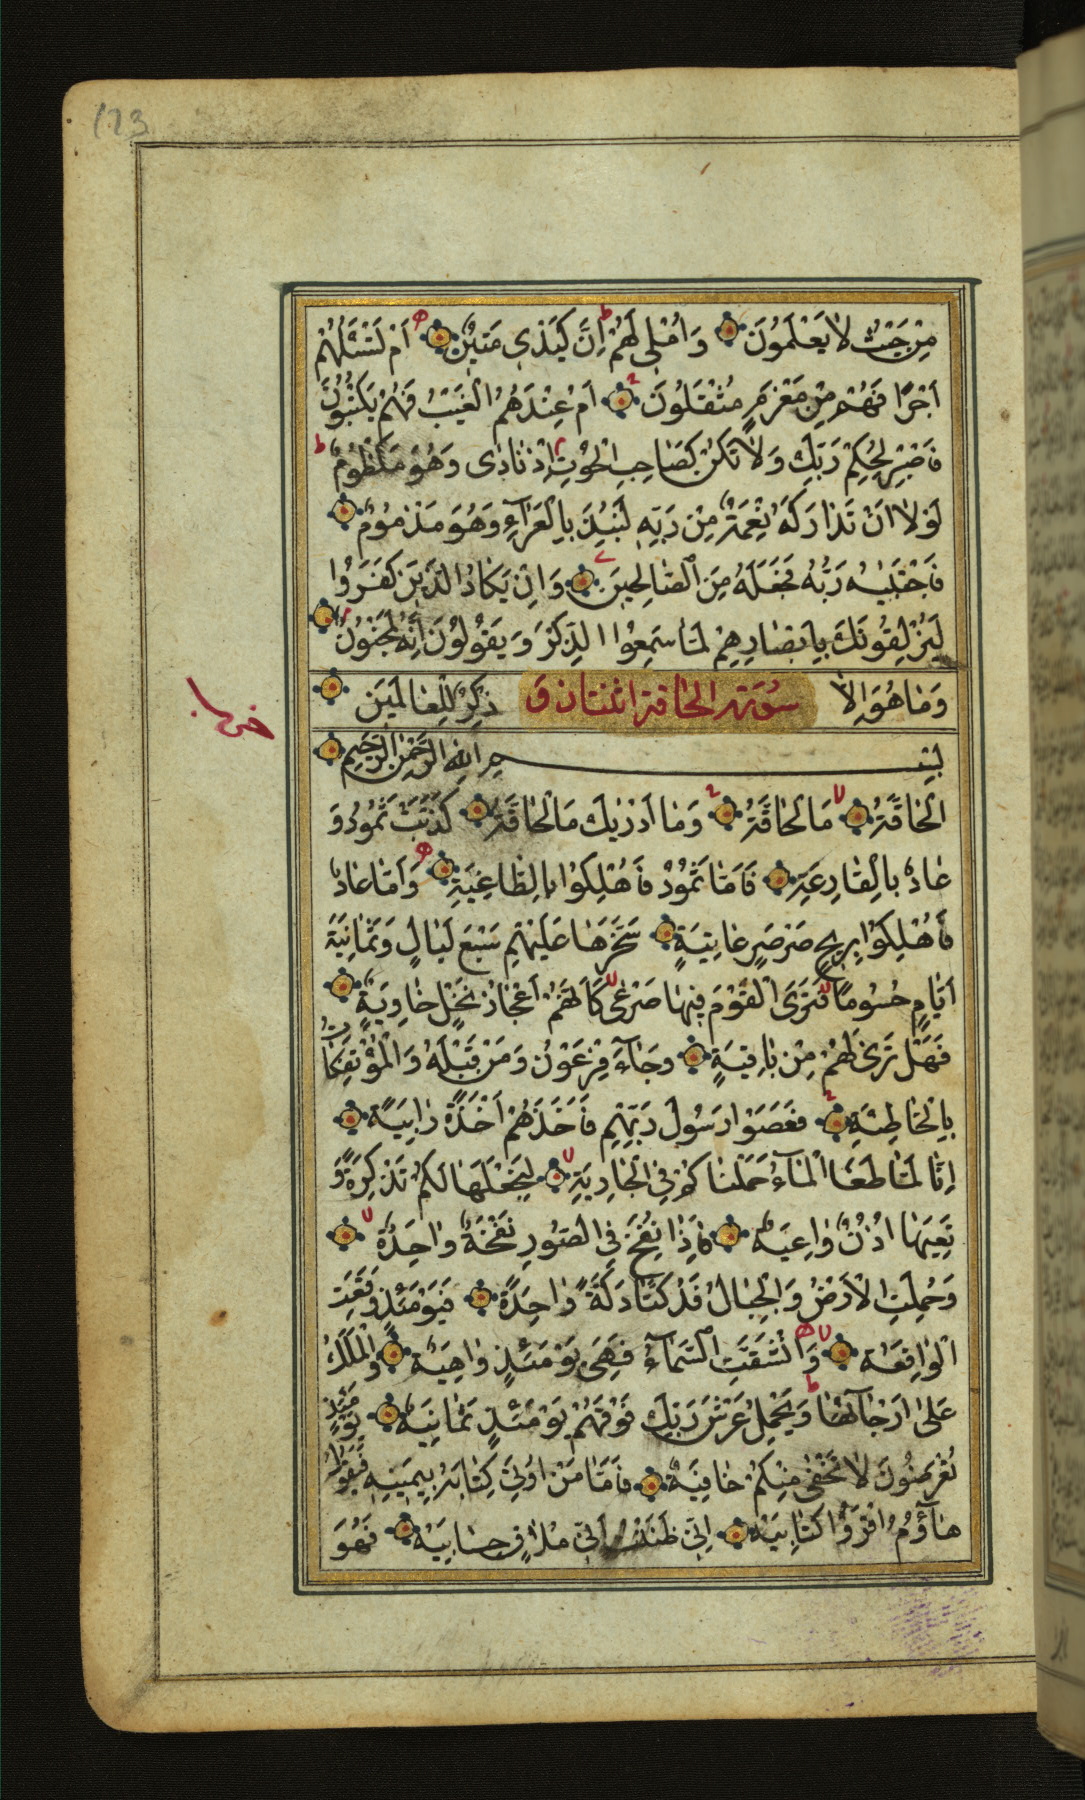 123
مِنْ حَيْثُ لَا يَعْلَمُونَ وَاُمْلِى لَهُمْ اِنَّ كَيْدِى مَتِينٌ اَمْ تَسْـَٔلُهُمْ
اَجْرًا فَهُمْ مِنْ مَغْرَمٍ مُثْقَلُونَ اَمْ عِنْدَهُمُ الْغَيْبُ فَهُمْ يَكْتُبُونَ
فَاصْبِرْ لِحُكْمِ رَبِّكَ وَلَا تَكُنْ كَصَاحِبِ الْحُوتِ اِذْ نَادٰى وَهُوَ مَكْظُومٌ
لَوْلَا اَنْ تَدَارَكَهُ نِعْمَةٌ مِنْ رَبِّهِ لَنُبِذَ بِالْعَرَآءِ وَهُوَ مَذْمُومٌ
فَاجْتَبٰيهُ رَبُّهُ فَجَعَلَهُ مِنَ الصَّالِحِينَ وَاِنْ يَكَادُ الَّذِينَ كَفَرُوا
لَيُزْلِقُونَكَ بِاَبْصَارِهِمْ لَمَّا سَمِعُوا الذِّكْرَ وَيَقُولُونَ اِنَّهُ لَمَجْنُونٌ
وَمَا هُوَ اِلَّا سُورَة الحاقة اثنتان و ذِكْرٌ لِلْعَالَمِينَ
بِسْمِ اللهِ الرَّحْمٰنِ الرَّحِيمِ
اَلْحَاقَّةُ مَا الْحَاقَّةُ وَمَا اَدْرٰيكَ مَا الْحَاقَّةُ كَذَّبَتْ ثَمُودُ وَ
عَادٌ بِالْقَارِعَةِ فَاَمَّا ثَمُودُ فَاُهْلِكُوا بِالطَّاغِيَةِ وَاَمَّا عَادٌ
فَاُهْلِكُوا بِرِيحٍ صَرْصَرٍ عَاتِيَةٍ سَخَّرَهَا عَلَيْهِمْ سَبْعَ لَيَالٍ وَثَمَانِيَةَ
اَيَّامٍ حُسُومًا فَتَرَى الْقَوْمَ فِيهَا صَرْعٰى كَاَنَّهُمْ اَعْجَازُ نَخْلٍ خَاوِيَةٍ
فَهَلْ تَرٰى لَهُمْ مِنْ بَاقِيَةٍ وَجَآءَ فِرْعَوْنُ وَمَنْ قَبْلَهُ وَالْمُؤْتَفِكَاتُ
بِالْخَاطِئَةِ فَعَصَوْا رَسُولَ رَبِّهِمْ فَاَخَذَهُمْ اَخْذَةً رَابِيَةً
اِنَّا لَمَّا طَغَا الْمَآءُ حَمَلْنَاكُمْ فِى الْجَارِيَةِ لِنَجْعَلَهَا لَكُمْ تَذْكِرَةً وَ
تَعِيَهَا اُذُنٌ وَاعِيَةٌ فَاِذَا نُفِخَ فِى الصُّورِ نَفْخَةٌ وَاحِدَةٌ
وَحُمِلَتِ الْاَرْضُ وَالْجِبَالُ فَدُكَّتَا دَكَّةً وَاحِدَةً فَيَوْمَئِذٍ وَقَعَتِ
الْوَاقِعَةُ وَانْشَقَّتِ السَّمَآءُ فَهِىَ يَوْمَئِذٍ وَاهِيَةٌ وَالْمَلَكُ
عَلٰى اَرْجَآئِهَا وَيَحْمِلُ عَرْشَ رَبِّكَ فَوْقَهُمْ يَوْمَئِذٍ ثَمَانِيَةٌ يَوْمَئِذٍ
تُعْرَضُونَ لَا تَخْفٰى مِنْكُمْ خَافِيَةٌ فَاَمَّا مَنْ اُوتِىَ كِتَابَهُ بِيَمِينِهِ فَيَقُولُ
هَآؤُمُ اقْرَؤُا كِتَابِيَهْ اِنِّى ظَنَنْتُ اَنِّى مُلَاقٍ حِسَابِيَهْ فَهُوَ